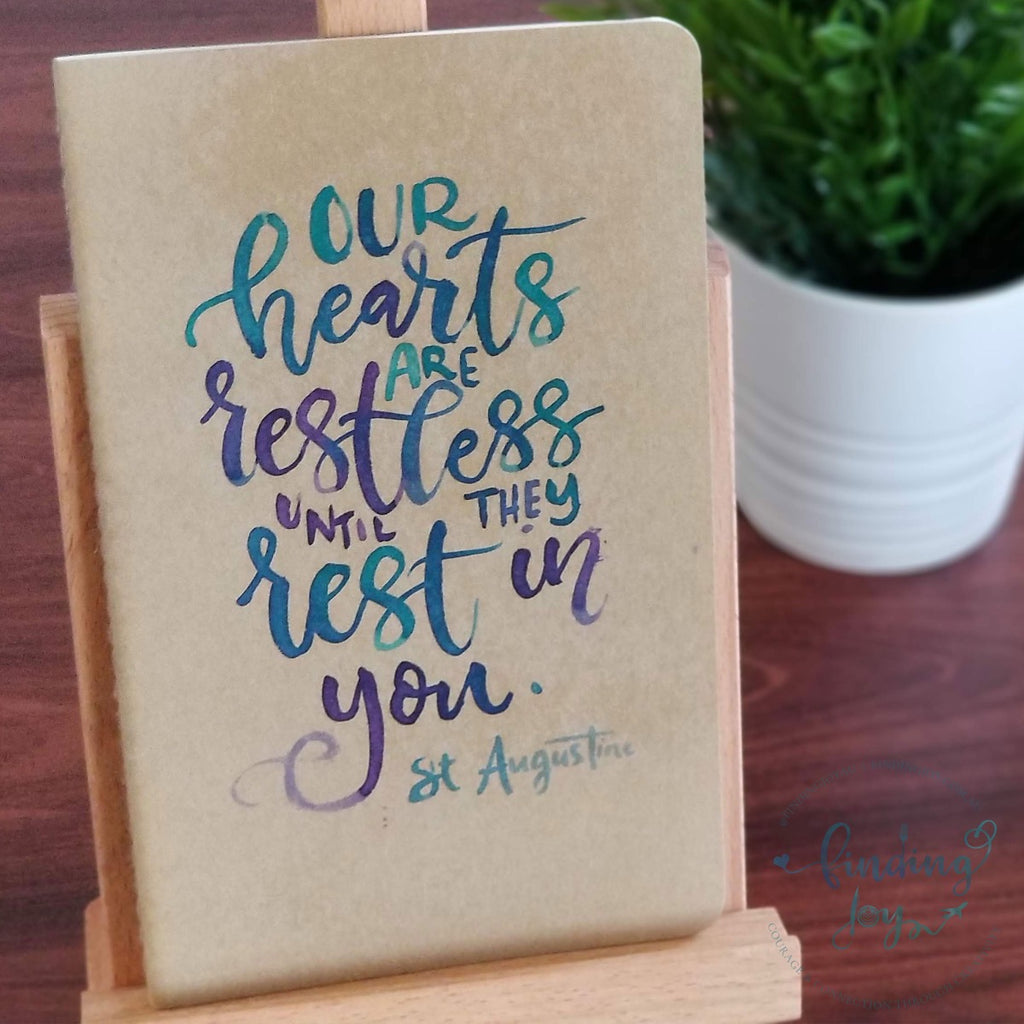 OUR
hearts
ARE
restless
UNTIL THEY
rest in
you.
St Augustine
finding
Joy
COURAGE